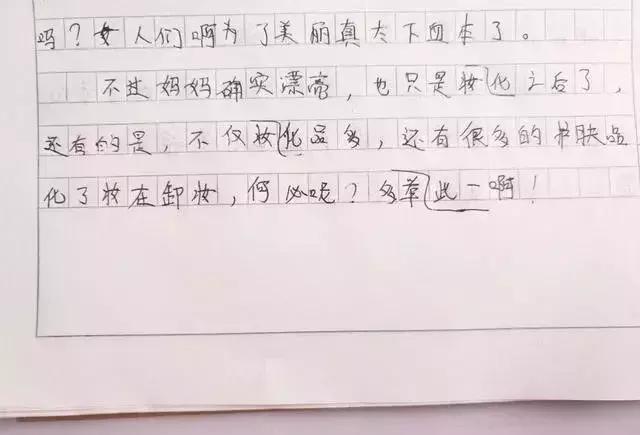 吗？女人们啊为了美丽真大下血本了。
不过妈妈确实漂亮，也只是妆化之后了，
还有的是，不仅妆化品多，还有很多的护肤品
化了妆在卸妆，何必呢？多举此一啊！